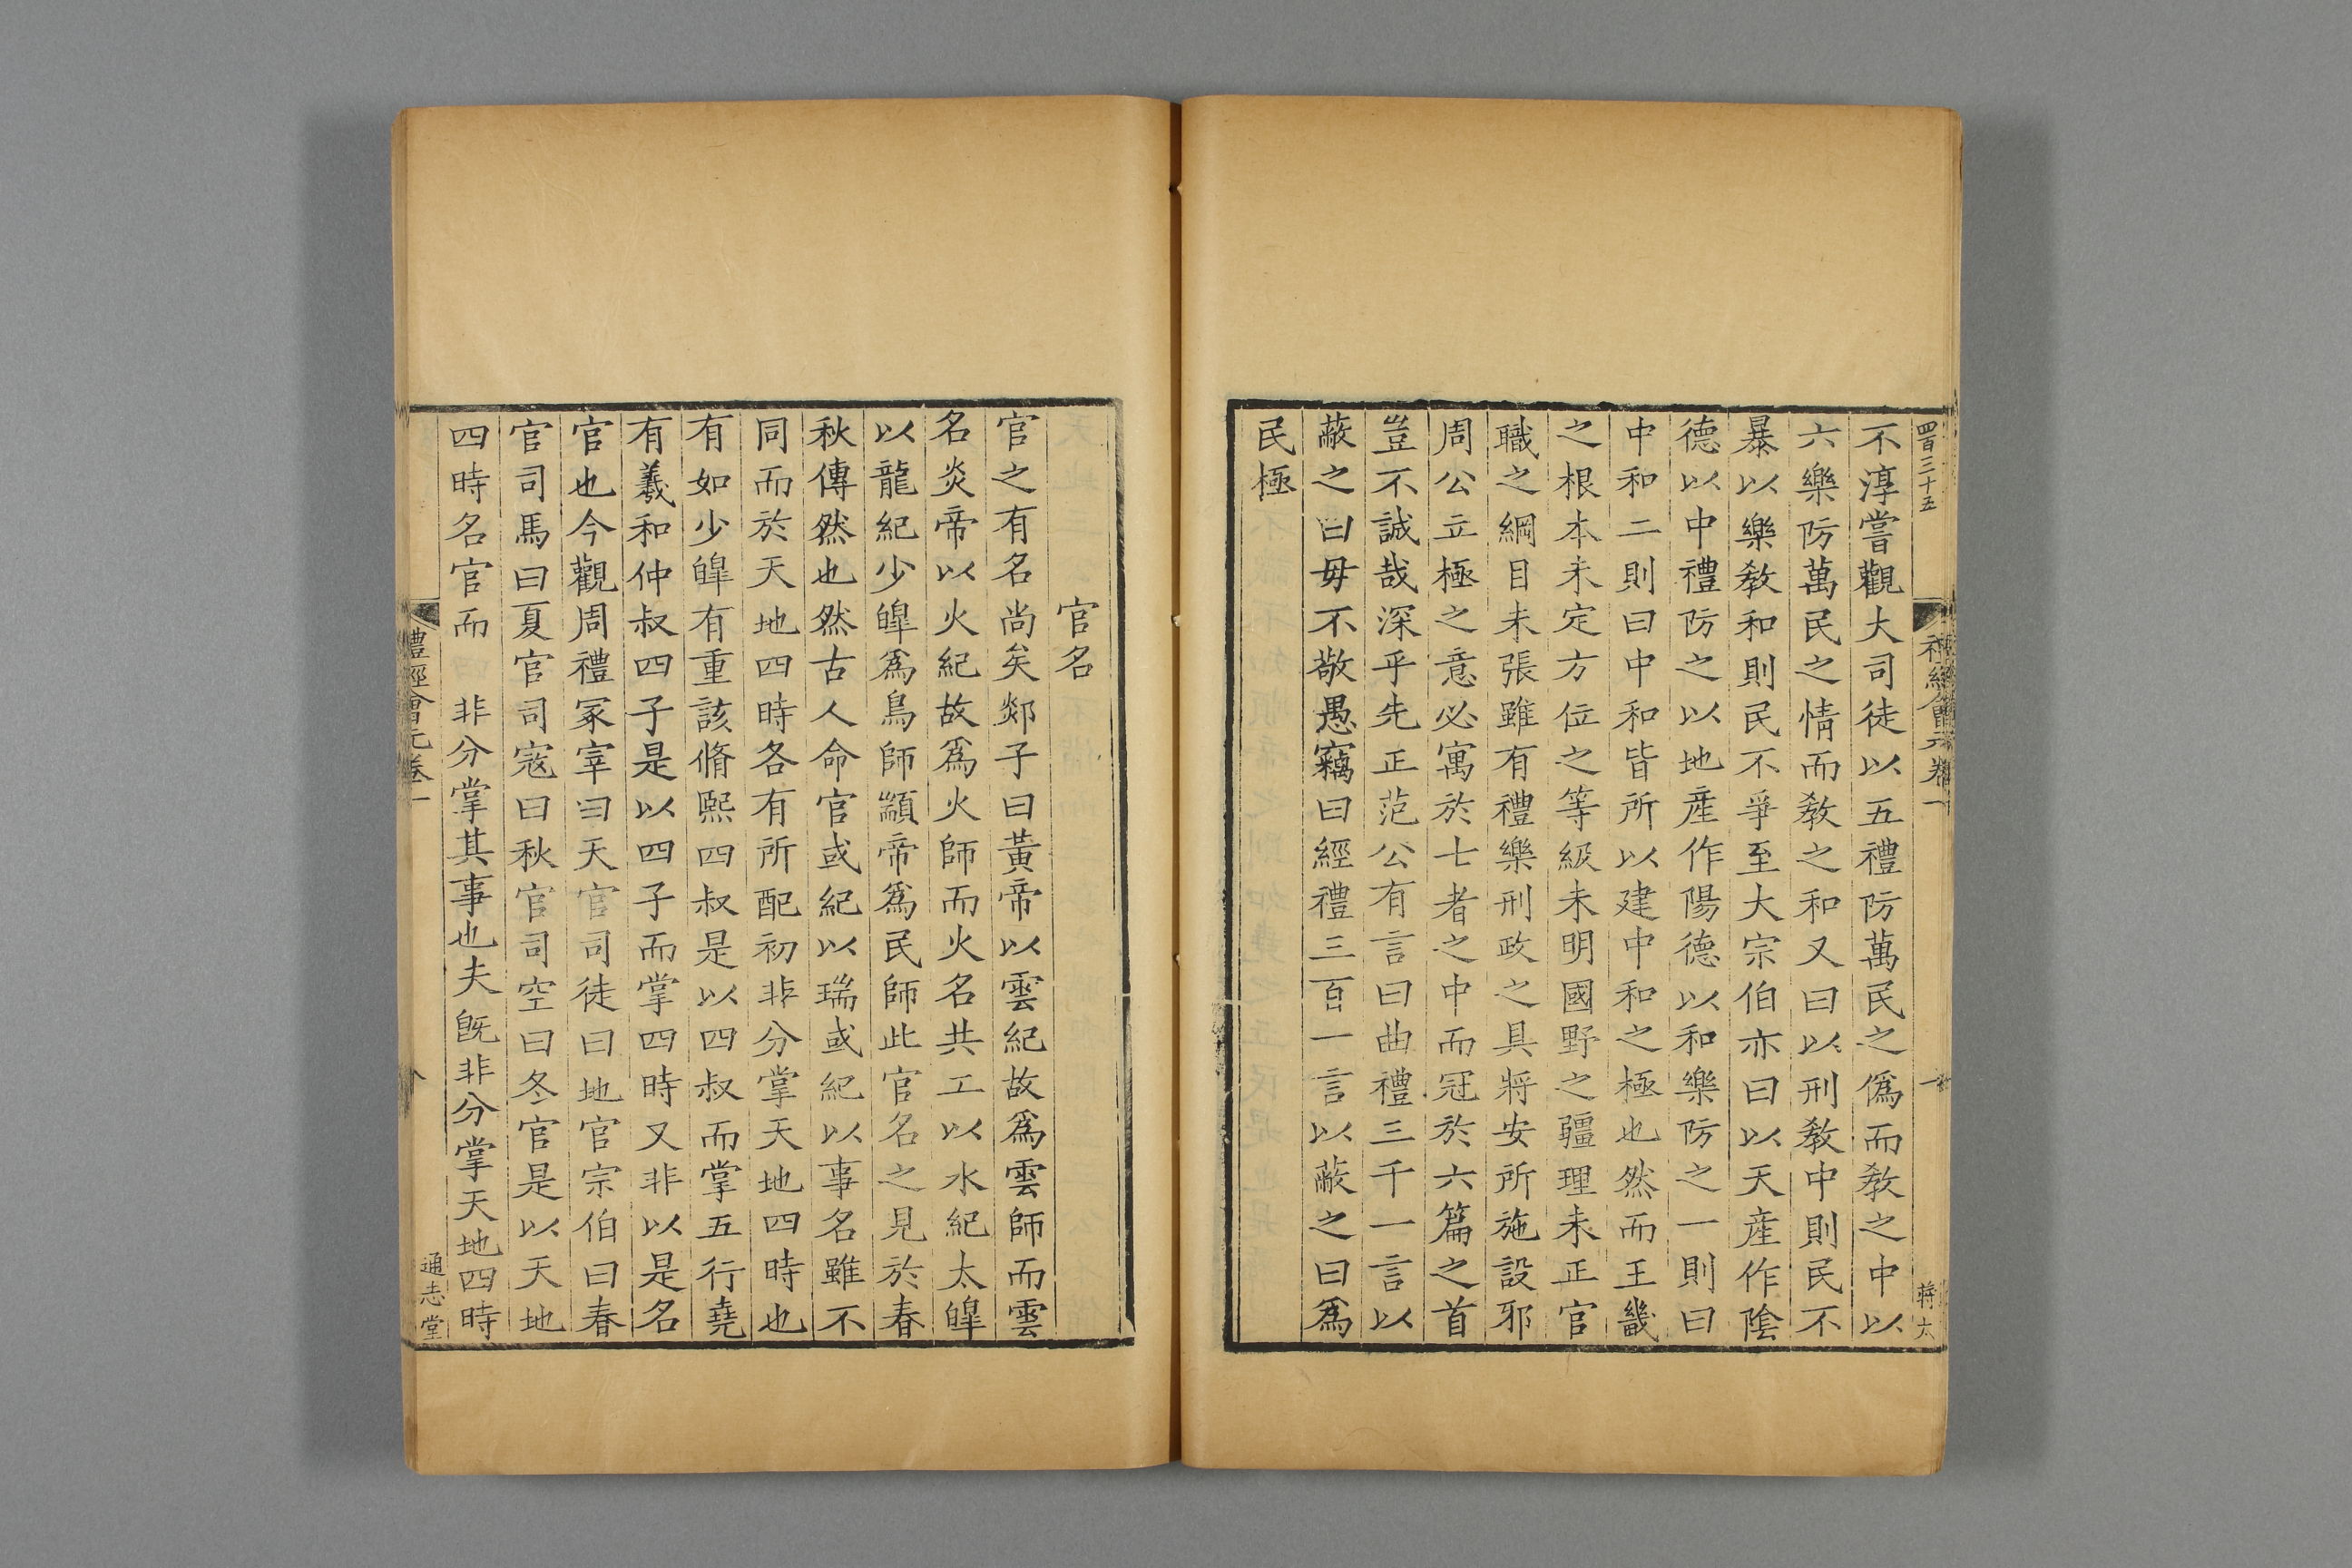 四百三十五
禮經會元卷一
蔣太
不淳嘗觀大司徒以五禮防萬民之僞而教之中以
六樂防萬民之情而教之和又曰以刑教中則民不
暴以樂教和則民不爭至大宗伯亦曰以天產作陰
德以中禮防之以地產作陽德以和樂防之一則曰
中和二則曰中和皆所以建中和之極也然而王畿
之根本未定方位之等級未明國野之疆理未正官
職之綱目未張雖有禮樂刑政之具將安所施設邪
周公立極之意必寓於七者之中而冠於六篇之首
豈不誠哉深乎先正范公有言曰曲禮三千一言以
蔽之曰毋不敬愚竊曰經禮三百一言以蔽之曰爲
民極
官名
官之有名尚矣郯子曰黃帝以雲紀故爲雲師而雲
名炎帝以火紀故爲火師而火名共工以水紀太皥
以龍紀少皥爲鳥師顓帝爲民師此官名之見於春
秋傳然也然古人命官或紀以瑞或紀以事名雖不
同而於天地四時各有所配初非分掌天地四時也
有如少皥有重該脩熙四叔是以四叔而掌五行堯
有羲和仲叔四子是以四子而掌四時又非以是名
官也今觀周禮冢宰曰天官司徒曰地官宗伯曰春
官司馬曰夏官司寇曰秋官司空曰冬官是以天地
四時名官而 非分掌其事也夫旣非分掌天地四時
禮經會元卷一
八
通志堂